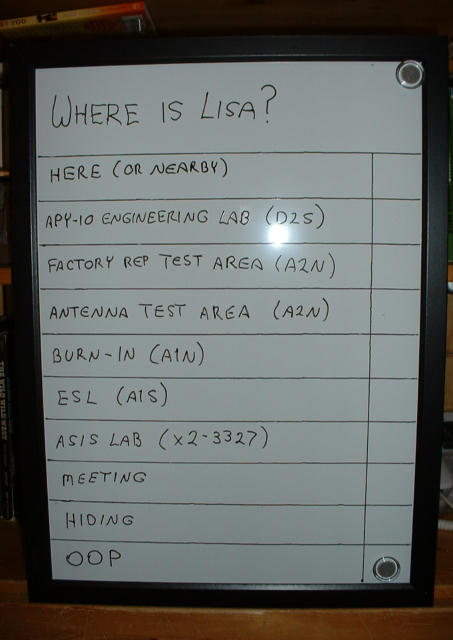 BY YOU
WHERE IS LISA?
HERE (OR NEARBY)
APY-10 ENGINEERING LAB (D2S)
FACTORY REP TEST AREA (A2N)
ANTENNA TEST AREA (A2N)
BURN-IN (A1N)
ESL (A1S)
ASIS LAB (X2-3327)
MEETING
HIDING
OOP
THE WILD WILD WEST